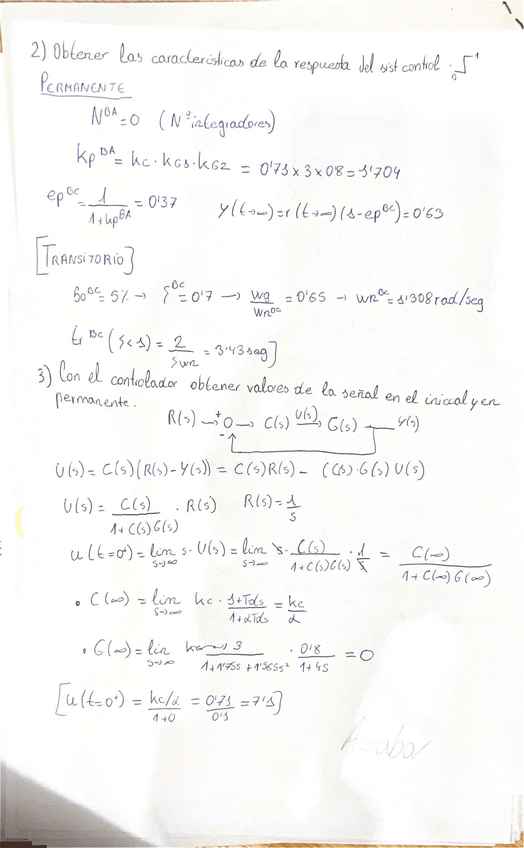 2) Obtener las características de la respuesta del sist control . 0∫¹
PERMANENTE
N^BA = 0 (Nº integradores)
Kp^BA = kc · kG1 · kG2 = 0'71 x 3 x 08 = 1'704
ep^BC = 1/(1+kp^BA) = 0'37 y(t→∞) = r(t→∞)(1-ep^BC) = 0'63
[TRANSITORIO]
So^BC = 5% → ζ^BC = 0'7 → wg/wn^BC = 0'65 → wn^BC = 1'308 rad/seg
tr^BC (ζ<1) = 2/(ζwn) = 3'43 seg]
3) Con el controlador obtener valores de la señal en el inicial y en
permanente.
R(s) → + O → C(s) U(s)→ G(s) → Y(s)
-
U(s) = C(s)(R(s) - Y(s)) = C(s)R(s) - (C(s)·G(s) U(s)
U(s) = C(s)/(1+C(s)G(s)) · R(s) R(s) = 1/s
u(t=0⁺) = lim s→∞ s·U(s) = lim s→∞ s · C(s)/(1+C(s)G(s)) · 1/s = C(∞)/(1+C(∞)G(∞))
• C(∞) = lim s→∞ kc · (1+Tds)/(1+αTds) = kc/α
• G(∞) = lim s→∞ 3/(1+1'75s+1'565s²) · 0'8/(1+4s) = 0
[u(t=0⁺) = (kc/α)/(1+0) = 0'71/0'1 = 7'1]